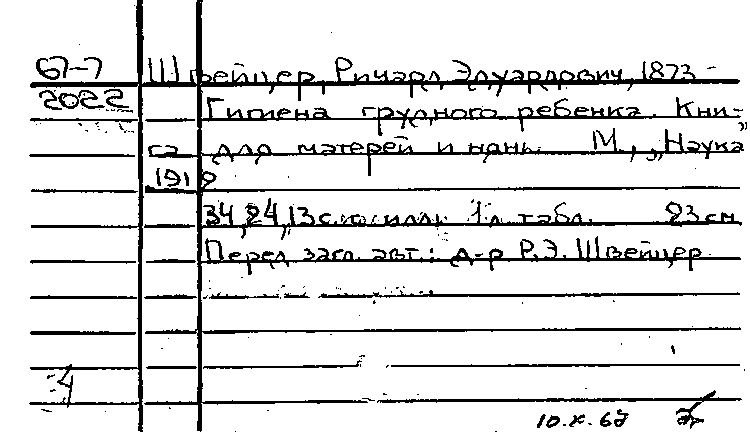 67-7 Швейцер, Ричард Эдуардович, 1873 -
2022 Гигиена грудного ребенка. Кни-
га для матерей и нянь. М., „Наука”
1912
34, 24, 13 с. с илл., 1 л. табл. 23 см
Перед загл. авт.: д-р Р.Э. Швейцер
4
10.X.67